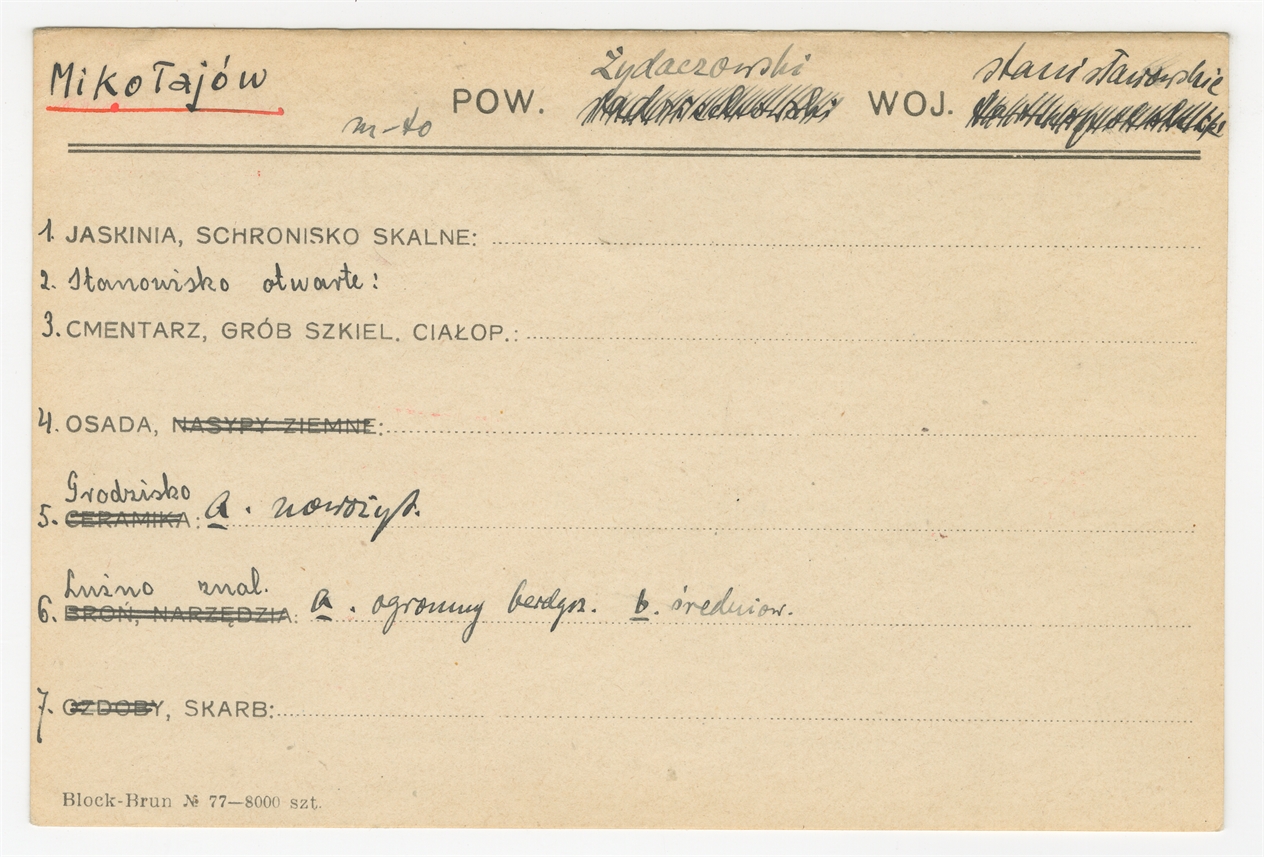 Mikołajów m-to POW. Żydaczowski WOJ. stanisławowskie
1. JASKINIA, SCHRONISKO SKALNE:
2. Stanowisko otwarte:
3. CMENTARZ, GRÓB SZKIEL. CIAŁOP.:
4. OSADA, NASYPY ZIEMNE:
Grodzisko
5. CERAMIKA: a. nowożyt.
Luźno znal.
6. BROŃ, NARZĘDZIA: a. ogromny berdysz. b. średniow.
7. OZDOBY, SKARB:
Block-Brun № 77—8000 szt.